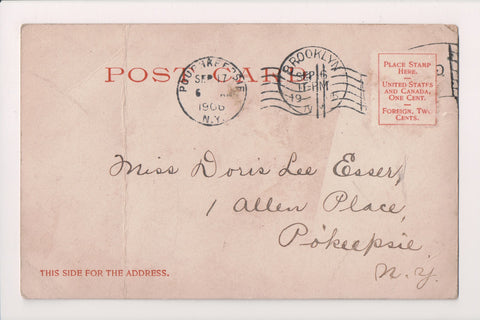 POST CARD
POUGHKEEPSIE
SEP 7
6
1906
N.Y.
BROOKLYN
SEP 6
11 PM
19
N.Y.
PLACE STAMP
HERE.
UNITED STATES
AND CANADA,
ONE CENT.
FOREIGN, TWO
CENTS.
Miss Doris Lee Esser,
1 Allen Place,
Po'keepsie,
N.Y.
THIS SIDE FOR THE ADDRESS.